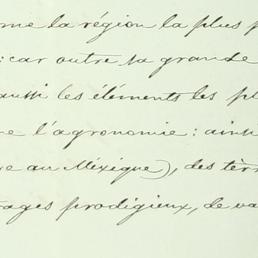 me la région la plus p
: car outre sa grande
aussi les éléments les pl
e l'agronomie : ainsi
re au Méxique), des tèr
rages prodigieux, de va